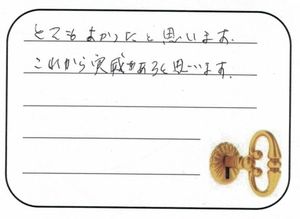 とてもよかったと思います。
これから実感があると思います。